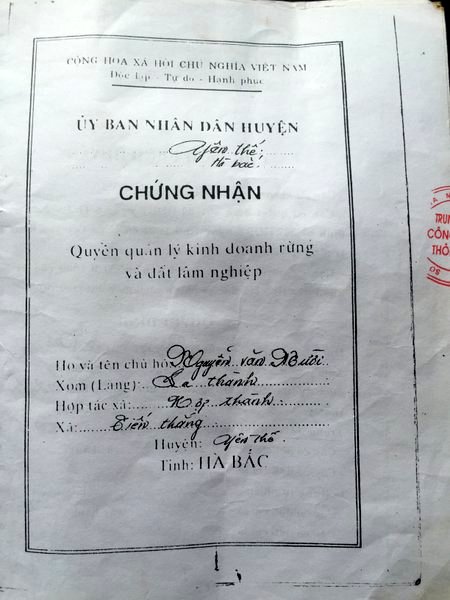 CỘNG HÒA XÃ HỘI CHỦ NGHĨA VIỆT NAM
Độc lập - Tự do - Hạnh phúc
ỦY BAN NHÂN DÂN HUYỆN
Yên thế
Hà bắc
CHỨNG NHẬN
Quyền quản lý kinh doanh rừng
và đất lâm nghiệp
Họ và tên chủ hộ Nguyễn văn Mười
Xóm (Làng): thành
Hợp tác xã: Hợp thành
Xã: Tiến thắng
Huyện: Yên thế
Tỉnh: HÀ BẮC
TRUN
CÔNG
THÔ